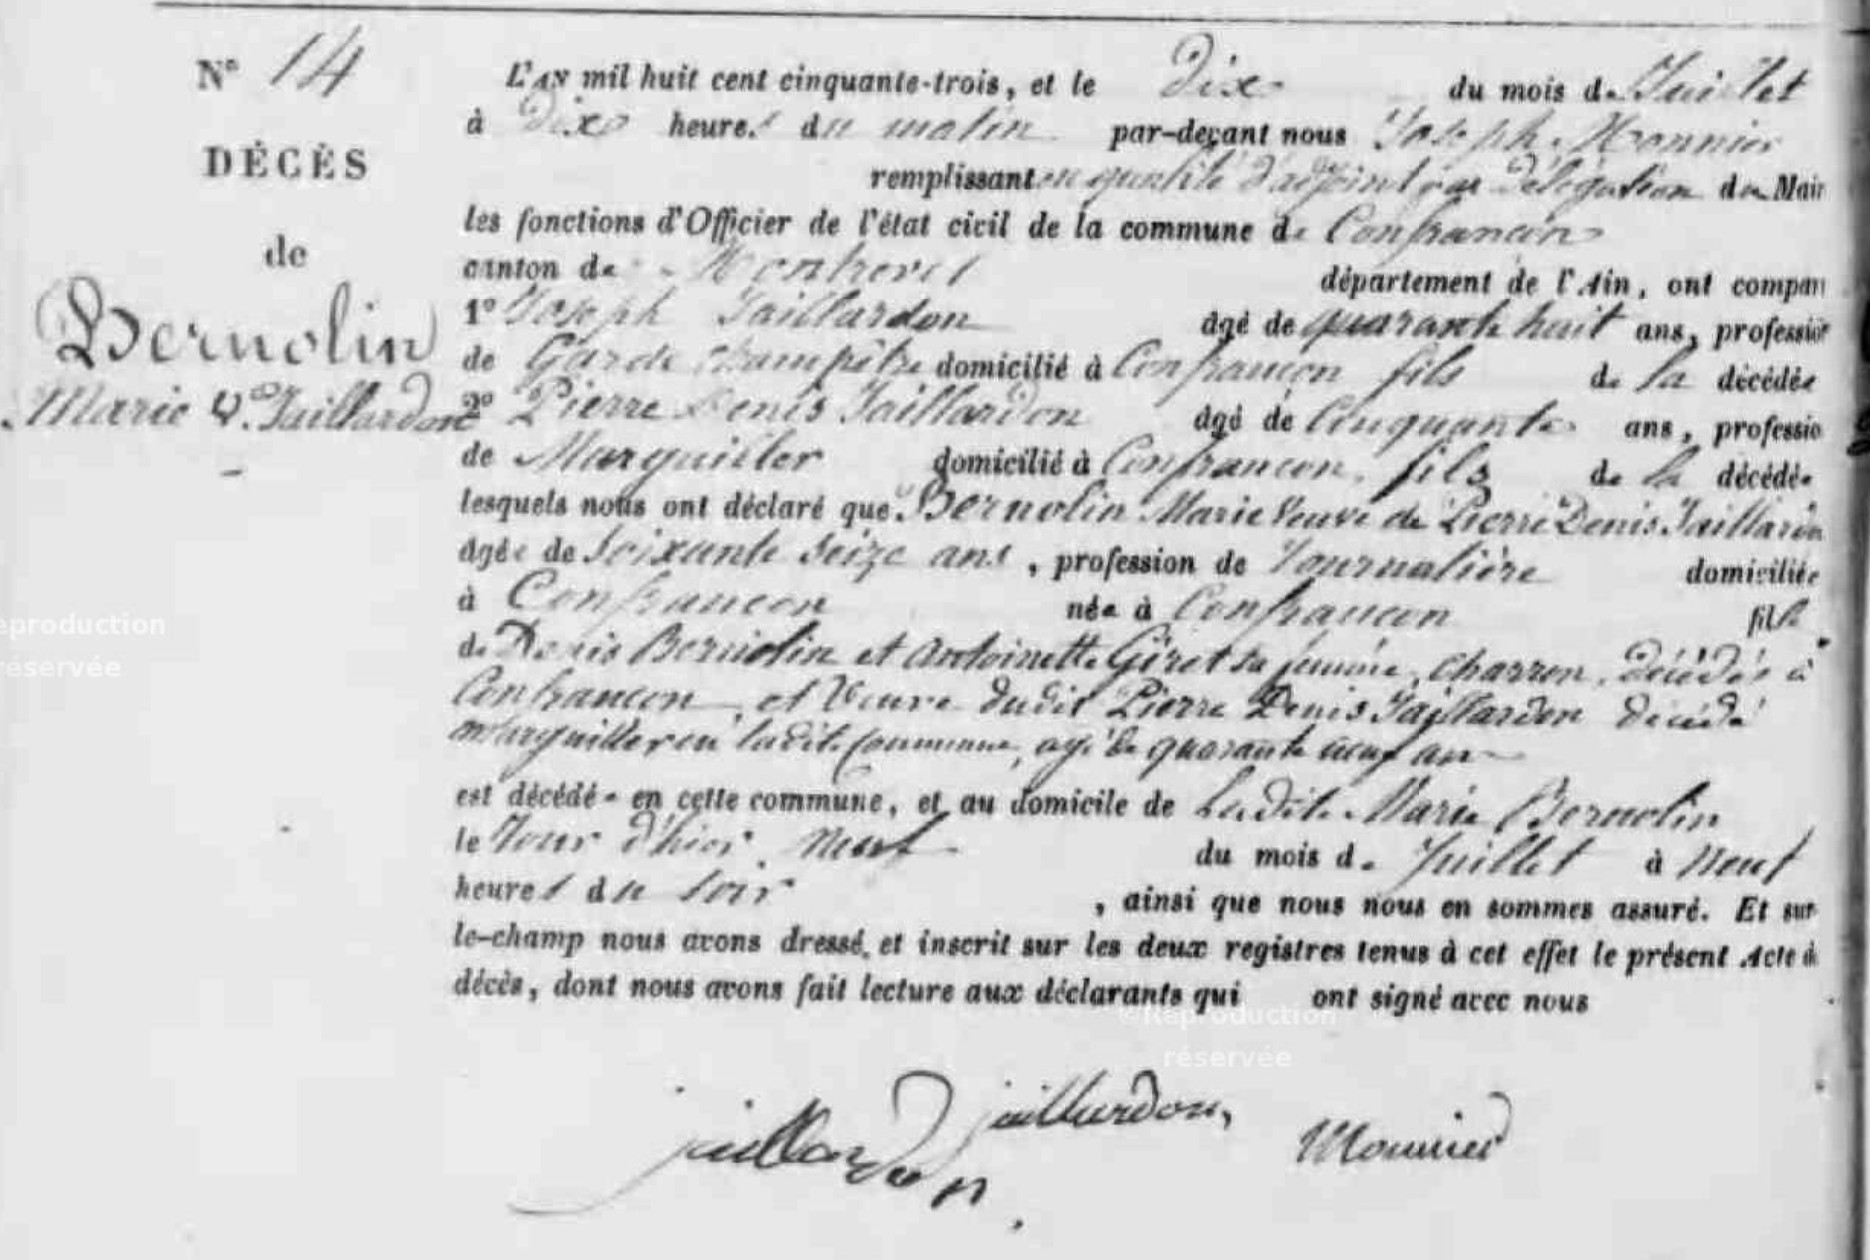 N° 14
DÉCÈS
de
Bernolin
Marie Ve. Jaillardon
L'AN mil huit cent cinquante-trois, et le dix du mois de Juillet
à dix heures du matin par-devant nous Joseph Monnier
remplissant en qualité d'adjoint par délégation du Mair
les fonctions d'Officier de l'état civil de la commune de Confrancon
canton de Montrevel département de l'Ain, ont comparu
1° Joseph Jaillardon âgé de quarante huit ans, profession
de Garde champêtre domicilié à Confrancon fils de la décédée
2° Pierre Denis Jaillardon âgé de Cinquante ans, professio
de Marguiller domicilié à Confrancon, fils de la décédée
lesquels nous ont déclaré que Bernolin Marie Veuve de Pierre Denis Jaillardon
âgée de soixante seize ans, profession de Journalière domiciliée
à Confrancon née à Confrancon fille
de Denis Bernolin et Antoinette Giret sa femme, charron, décédés à
Confrancon, et Veuve dudit Pierre Denis Jaillardon décédé
marguiller en ladite Commune, agé de quarante neuf ans
est décédée en cette commune, et au domicile de Ladite Marie Bernolin
le Jour d'hier, neuf du mois de Juillet à neuf
heures du soir, ainsi que nous nous en sommes assuré. Et sur-
le-champ nous avons dressé, et inscrit sur les deux registres tenus à cet effet le présent Acte de
décès, dont nous avons fait lecture aux déclarants qui ont signé avec nous
jaillardon,
jaillardon
Monnier
eproduction
réservée
©Reproduction
réservée